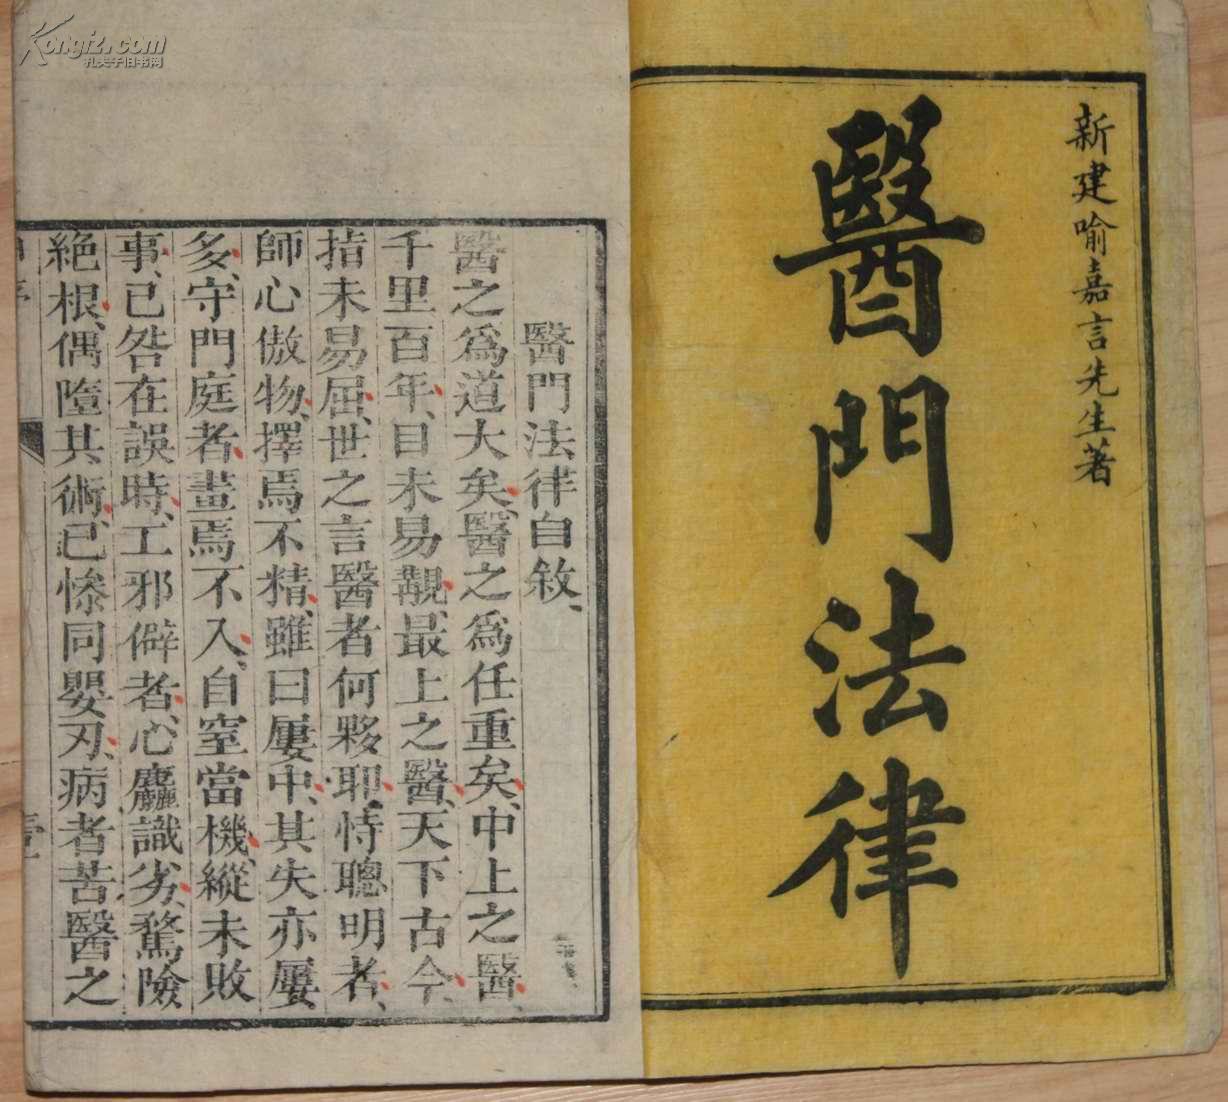 新建喻嘉言先生著
醫門法律
醫門法律自敘、
醫之為道大矣、醫之為任重矣、中上之醫、
千里百年、目未易覯、最上之醫、天下古今、
指未易屈、世之言醫者何夥耶、恃聰明者、
師心傲物、擇焉不精、雖曰屢中、其失亦屢
多、守門庭者、畫焉不入、自窒當機、縱未敗
事、已咎在誤時、工邪僻者、心麤識劣、騖險
絕根、偶墮其術、已慘同嬰刃、病者苦醫之
Kongfz.com
孔夫子旧书网